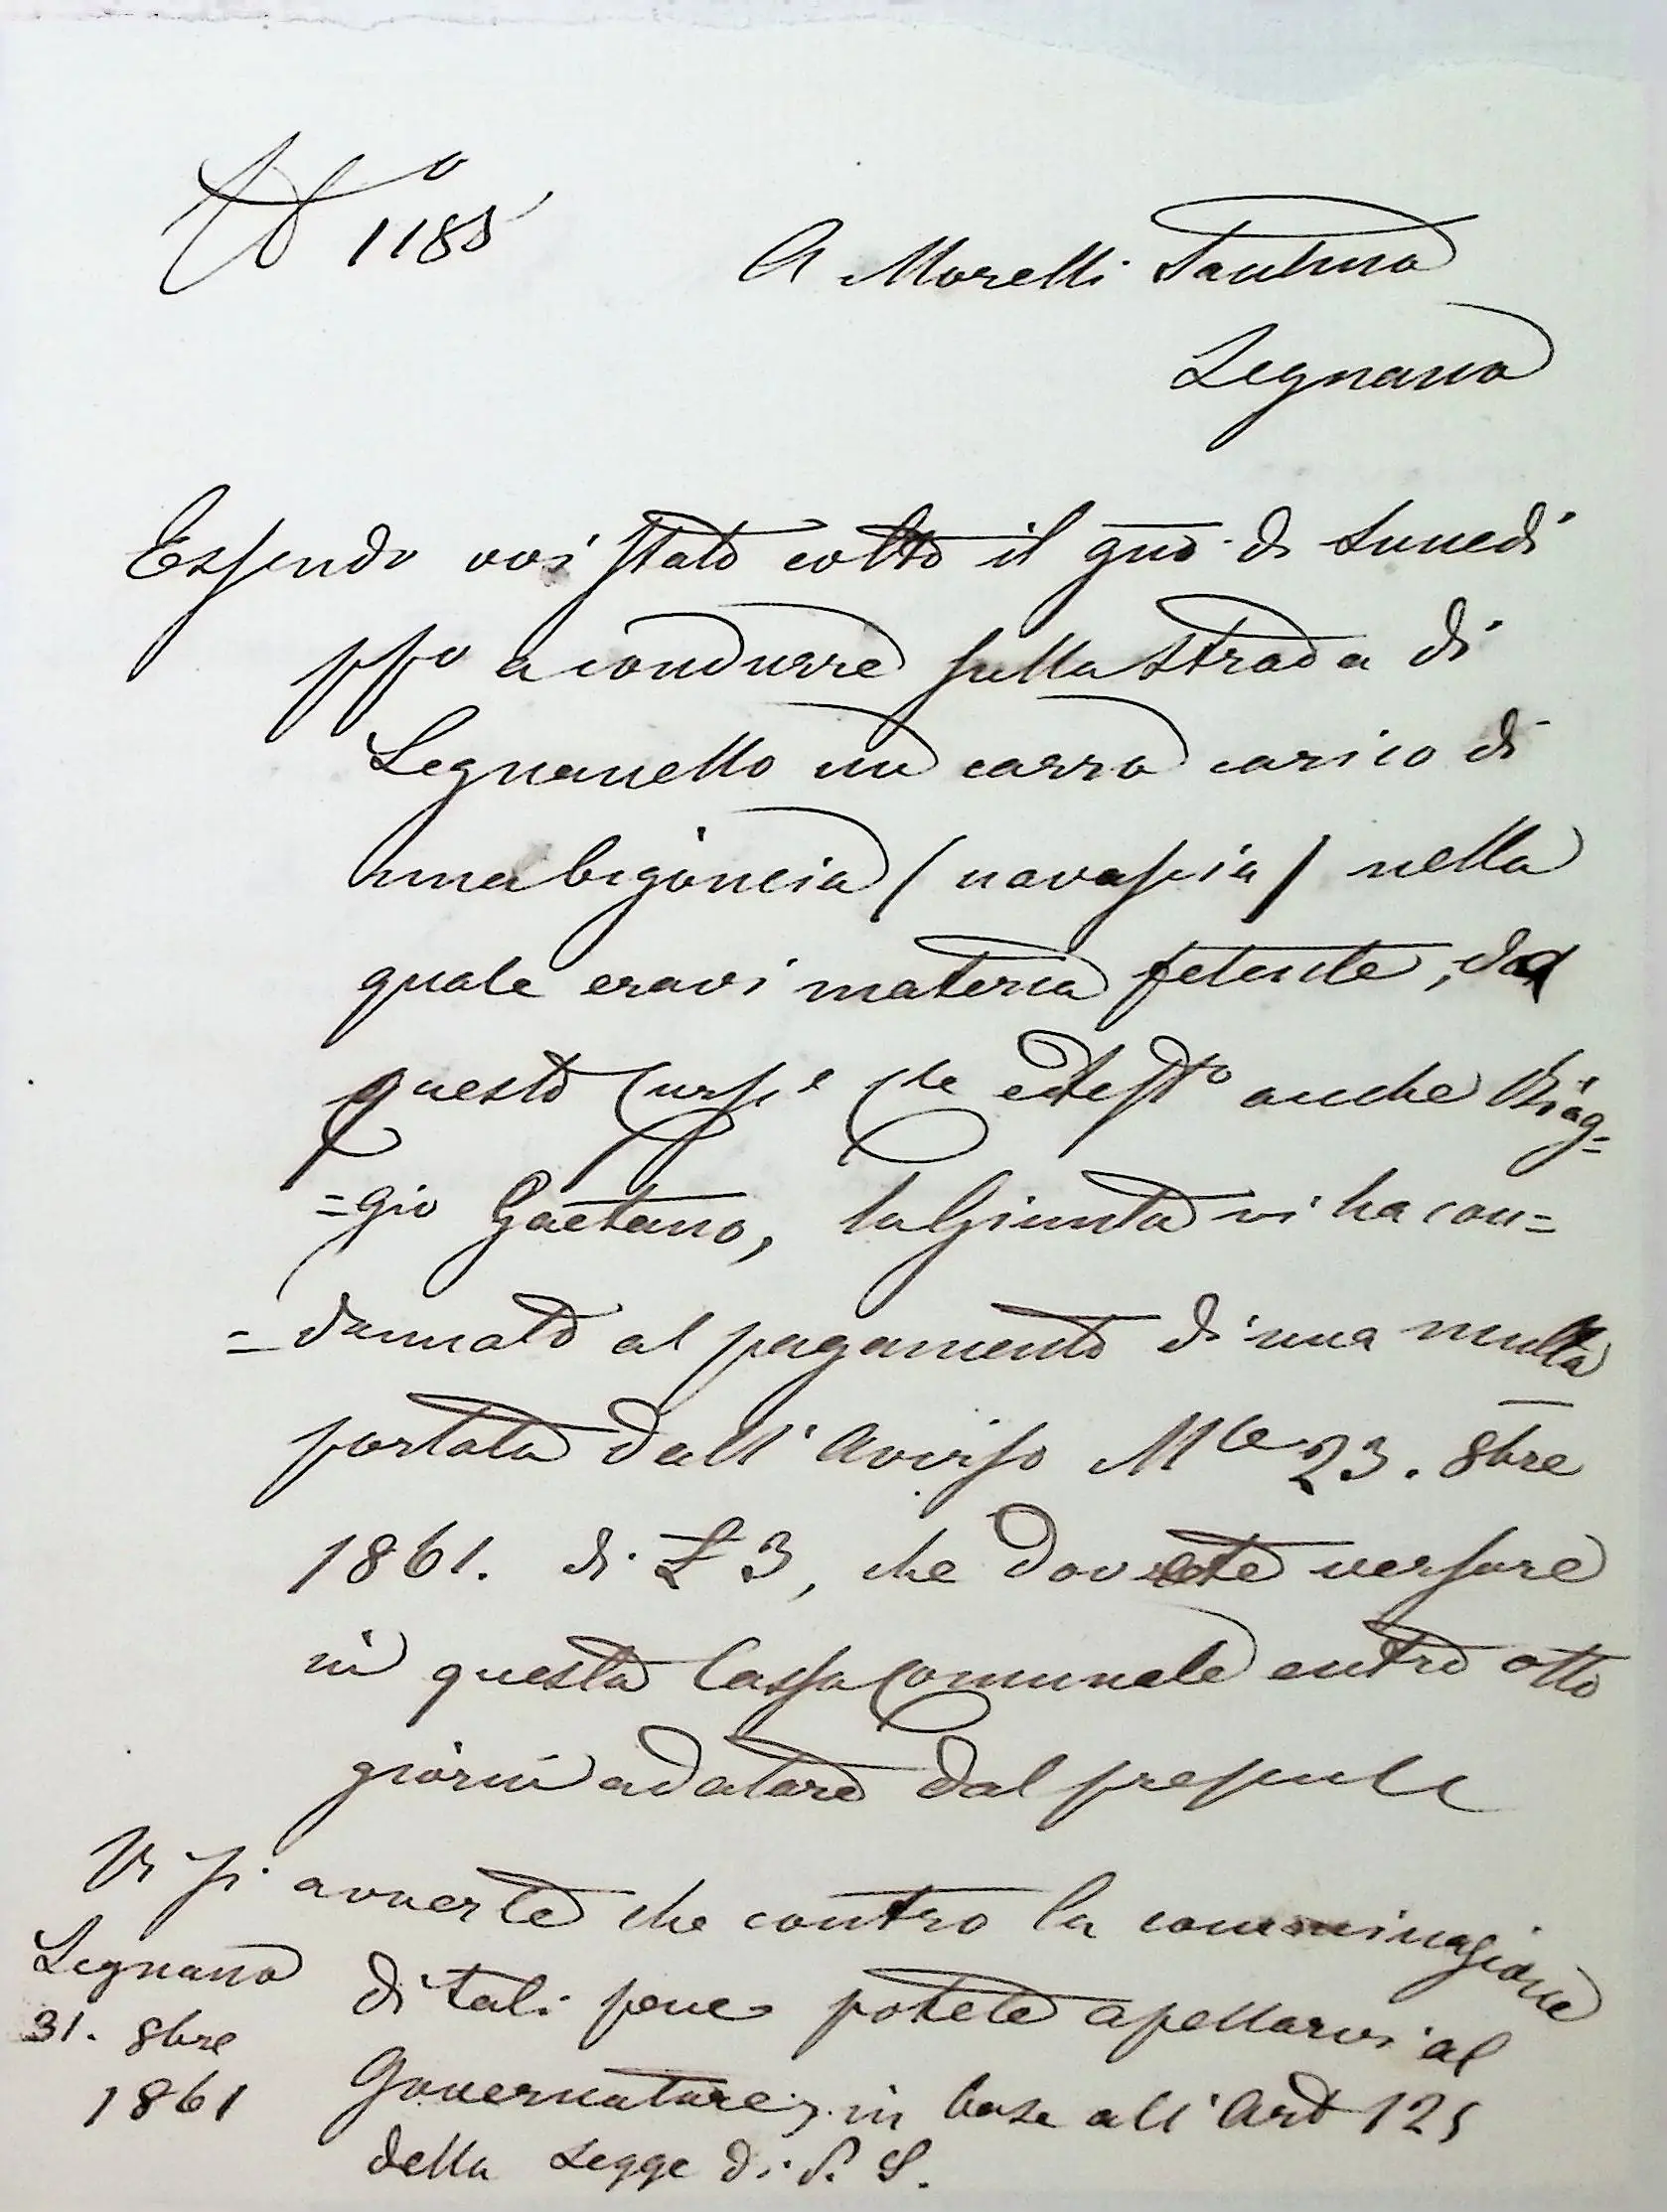 N.o 1185
A Morelli Paolino
Legnano
Essendo voi stato colto il gno. di Lunedi
ppo a condurre sulla strada di
Legnanello un carro carico di
una bigoncia (navascia) nella
quale eravi materia fetente, da
questo Curse che attesto anche Biag=
=gio Gaetano, la Giunta vi ha con=
=dannato al pagamento di una multa
portata dall'Avviso Mle 23. 8bre
1861. di £ 3, che dovrete versare
in questa Cassa Comunale entro otto
giorni a datare dal presente
Vi si avverte che contro la comminazione
di tali pene potete apellarvi al
Governatore, in base all'Art 125
della Legge di P. S.
Legnano
31. 8bre
1861